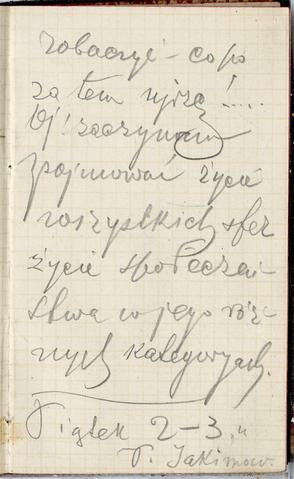 zobaczyć – co po
za tem ujrzę!....
Oj! zaczynam
pojmować życie
wszystkich sfer
życie społeczeń-
stwa w jego róż-
nych kategoryach.
Piątek 2–3 "
P. Jakimow.